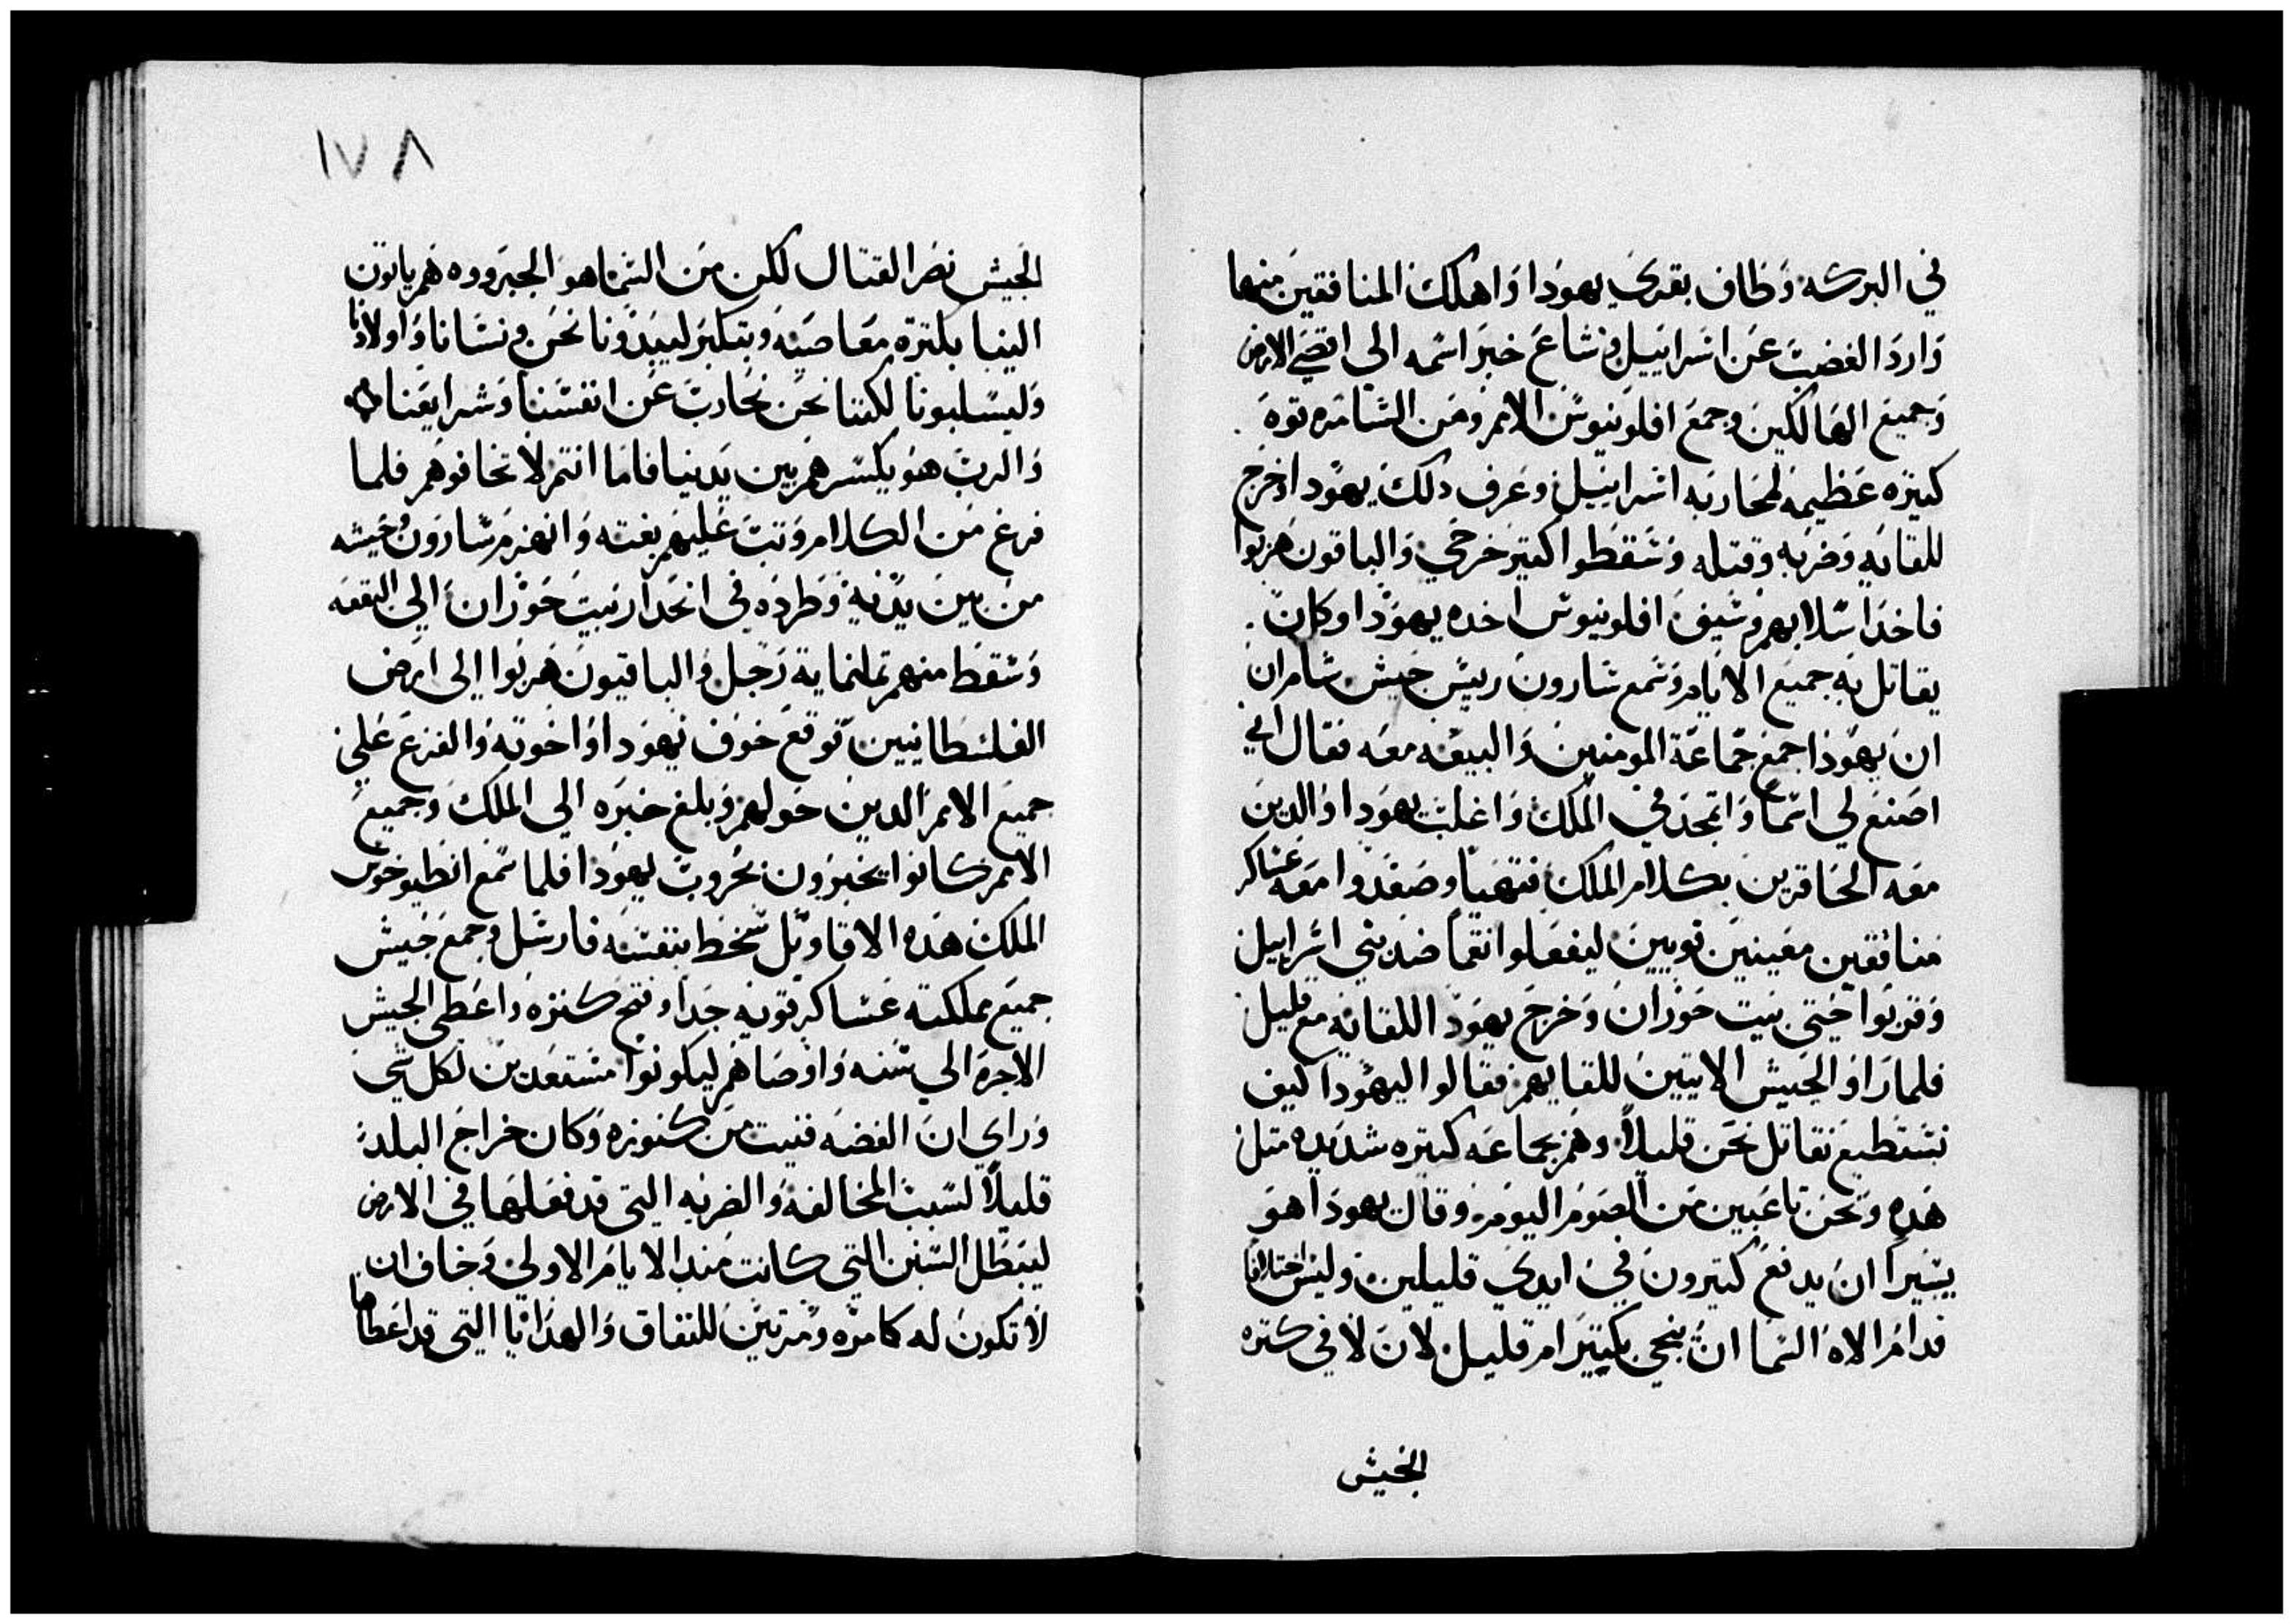 في البركه وطاف بقري يهودا واهلك المنافقين منها
وارد الغضب عن اسراييل وشاع خبر اسمه الي اقصي الارض
وجميع الهالكين وجمع افلونيوس الامم ومن السامره قوه
كتيره عظيمه لمحاربه اسراييل وعرف دلك يهودا وخرج
للقايه وضربه وقتله وسقطوا كتير جرحي والباقون هربوا
فاخد اسلابهم وسيف افلونيوس اخده يهودا وكان
يقاتل به جميع الايام وسمع سارون رييس جيش سامران
ان يهودا جمع جماعة المومنين والبيعه معه فقال اني
اصنع لي اسما واتمجد في الملك واغلب يهودا والدين
معه الحاقرين بكلام الملك فتهيا وصعدوا معه عساكر
منافقين معينين قويين ليفعلوا نقما ضد بني اسراييل
وقربوا حتي بيت حوران وخرج يهودا للقايه مع قليل
فلما راوا الجيش الاتيين للقايهم فقالوا ليهودا كيف
نستطيع نقاتل نحن قليلا وهم جماعه كتيره شديده متل
هده ونحن تاعبين من الصوم اليوم وقال يهودا هو
يسيرا ان يدفع كتيرون في ايدي قليلين وليس اختلافا
قدام الاه السما ان ينجي بكتير ام قليل لان لا في كتره
الجيش
١٧٨
الجيش نصر القتال لكن من السما هو الجبروه هم ياتون
الينا بكتره معاصيه وبتكبر ليبدونا نحن ونسانا واولادنا
وليسلبونا لكننا نحن نحارب عن انفسنا وشرايعنا
والرب هو يكسرهم بين يدينا فاما انتم لا تخافوهم فلما
فرغ من الكلام وتب عليهم بغته وانهزم سارون وجيشه
من بين يديه وطرده في انحدار بيت حوران الي البقعه
وسقط منهم تمانماية رجل والباقيون هربوا الي ارض
الفلسطانيين توقع خوف يهودا واخوته والفزع علي
جميع الامم الدين حولهم وبلغ خبره الي الملك وجميع
الامم كانوا يخبرون بحروب يهودا فلما سمع انطيوخوس
الملك هده الاقاويل سخط بنفسه فارسل وجمع جيش
جميع مملكته عساكر قويه جدا وفتح كنزه واعطي الجيش
الاجره الي سنه واوصاهم ليكونوا مستعدين لكل شي
وراي ان الفضه فنيت من كنوزه وكان خراج البلد
قليلا لسبب المخالفه والضربه التي قد فعلها في الارض
ليبطل السنن التي كانت مند الايام الاولي وخاف ان
لا تكون له كامره ومرتين للنفاق والهدايا التي قد اعطاها